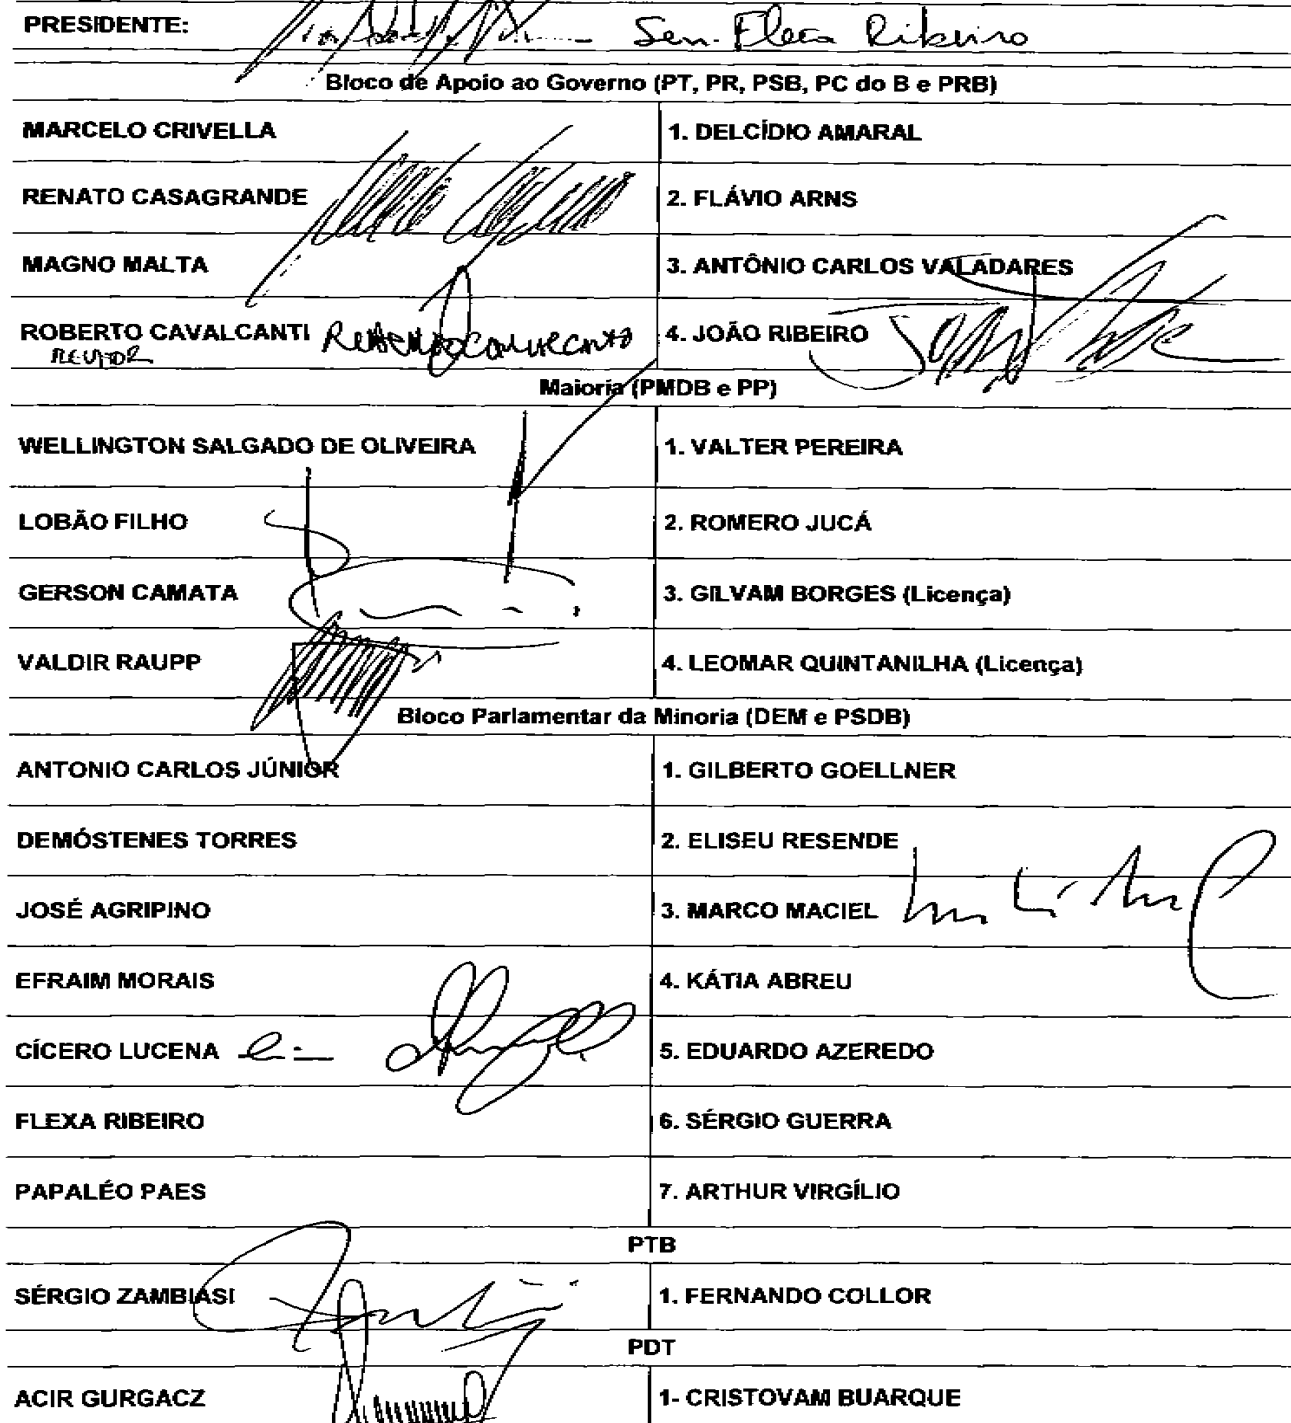 PRESIDENTE: Sen. Flexa Ribeiro
Bloco de Apoio ao Governo (PT, PR, PSB, PC do B e PRB)
MARCELO CRIVELLA 1. DELCÍDIO AMARAL
RENATO CASAGRANDE 2. FLÁVIO ARNS
MAGNO MALTA 3. ANTÔNIO CARLOS VALADARES
ROBERTO CAVALCANTI 4. JOÃO RIBEIRO
Maioria (PMDB e PP)
WELLINGTON SALGADO DE OLIVEIRA 1. VALTER PEREIRA
LOBÃO FILHO 2. ROMERO JUCÁ
GERSON CAMATA 3. GILVAM BORGES (Licença)
VALDIR RAUPP 4. LEOMAR QUINTANILHA (Licença)
Bloco Parlamentar da Minoria (DEM e PSDB)
ANTONIO CARLOS JÚNIOR 1. GILBERTO GOELLNER
DEMÓSTENES TORRES 2. ELISEU RESENDE
JOSÉ AGRIPINO 3. MARCO MACIEL
EFRAIM MORAIS 4. KÁTIA ABREU
CÍCERO LUCENA 5. EDUARDO AZEREDO
FLEXA RIBEIRO 6. SÉRGIO GUERRA
PAPALÉO PAES 7. ARTHUR VIRGÍLIO
PTB
SÉRGIO ZAMBIASI 1. FERNANDO COLLOR
PDT
ACIR GURGACZ 1- CRISTOVAM BUARQUE